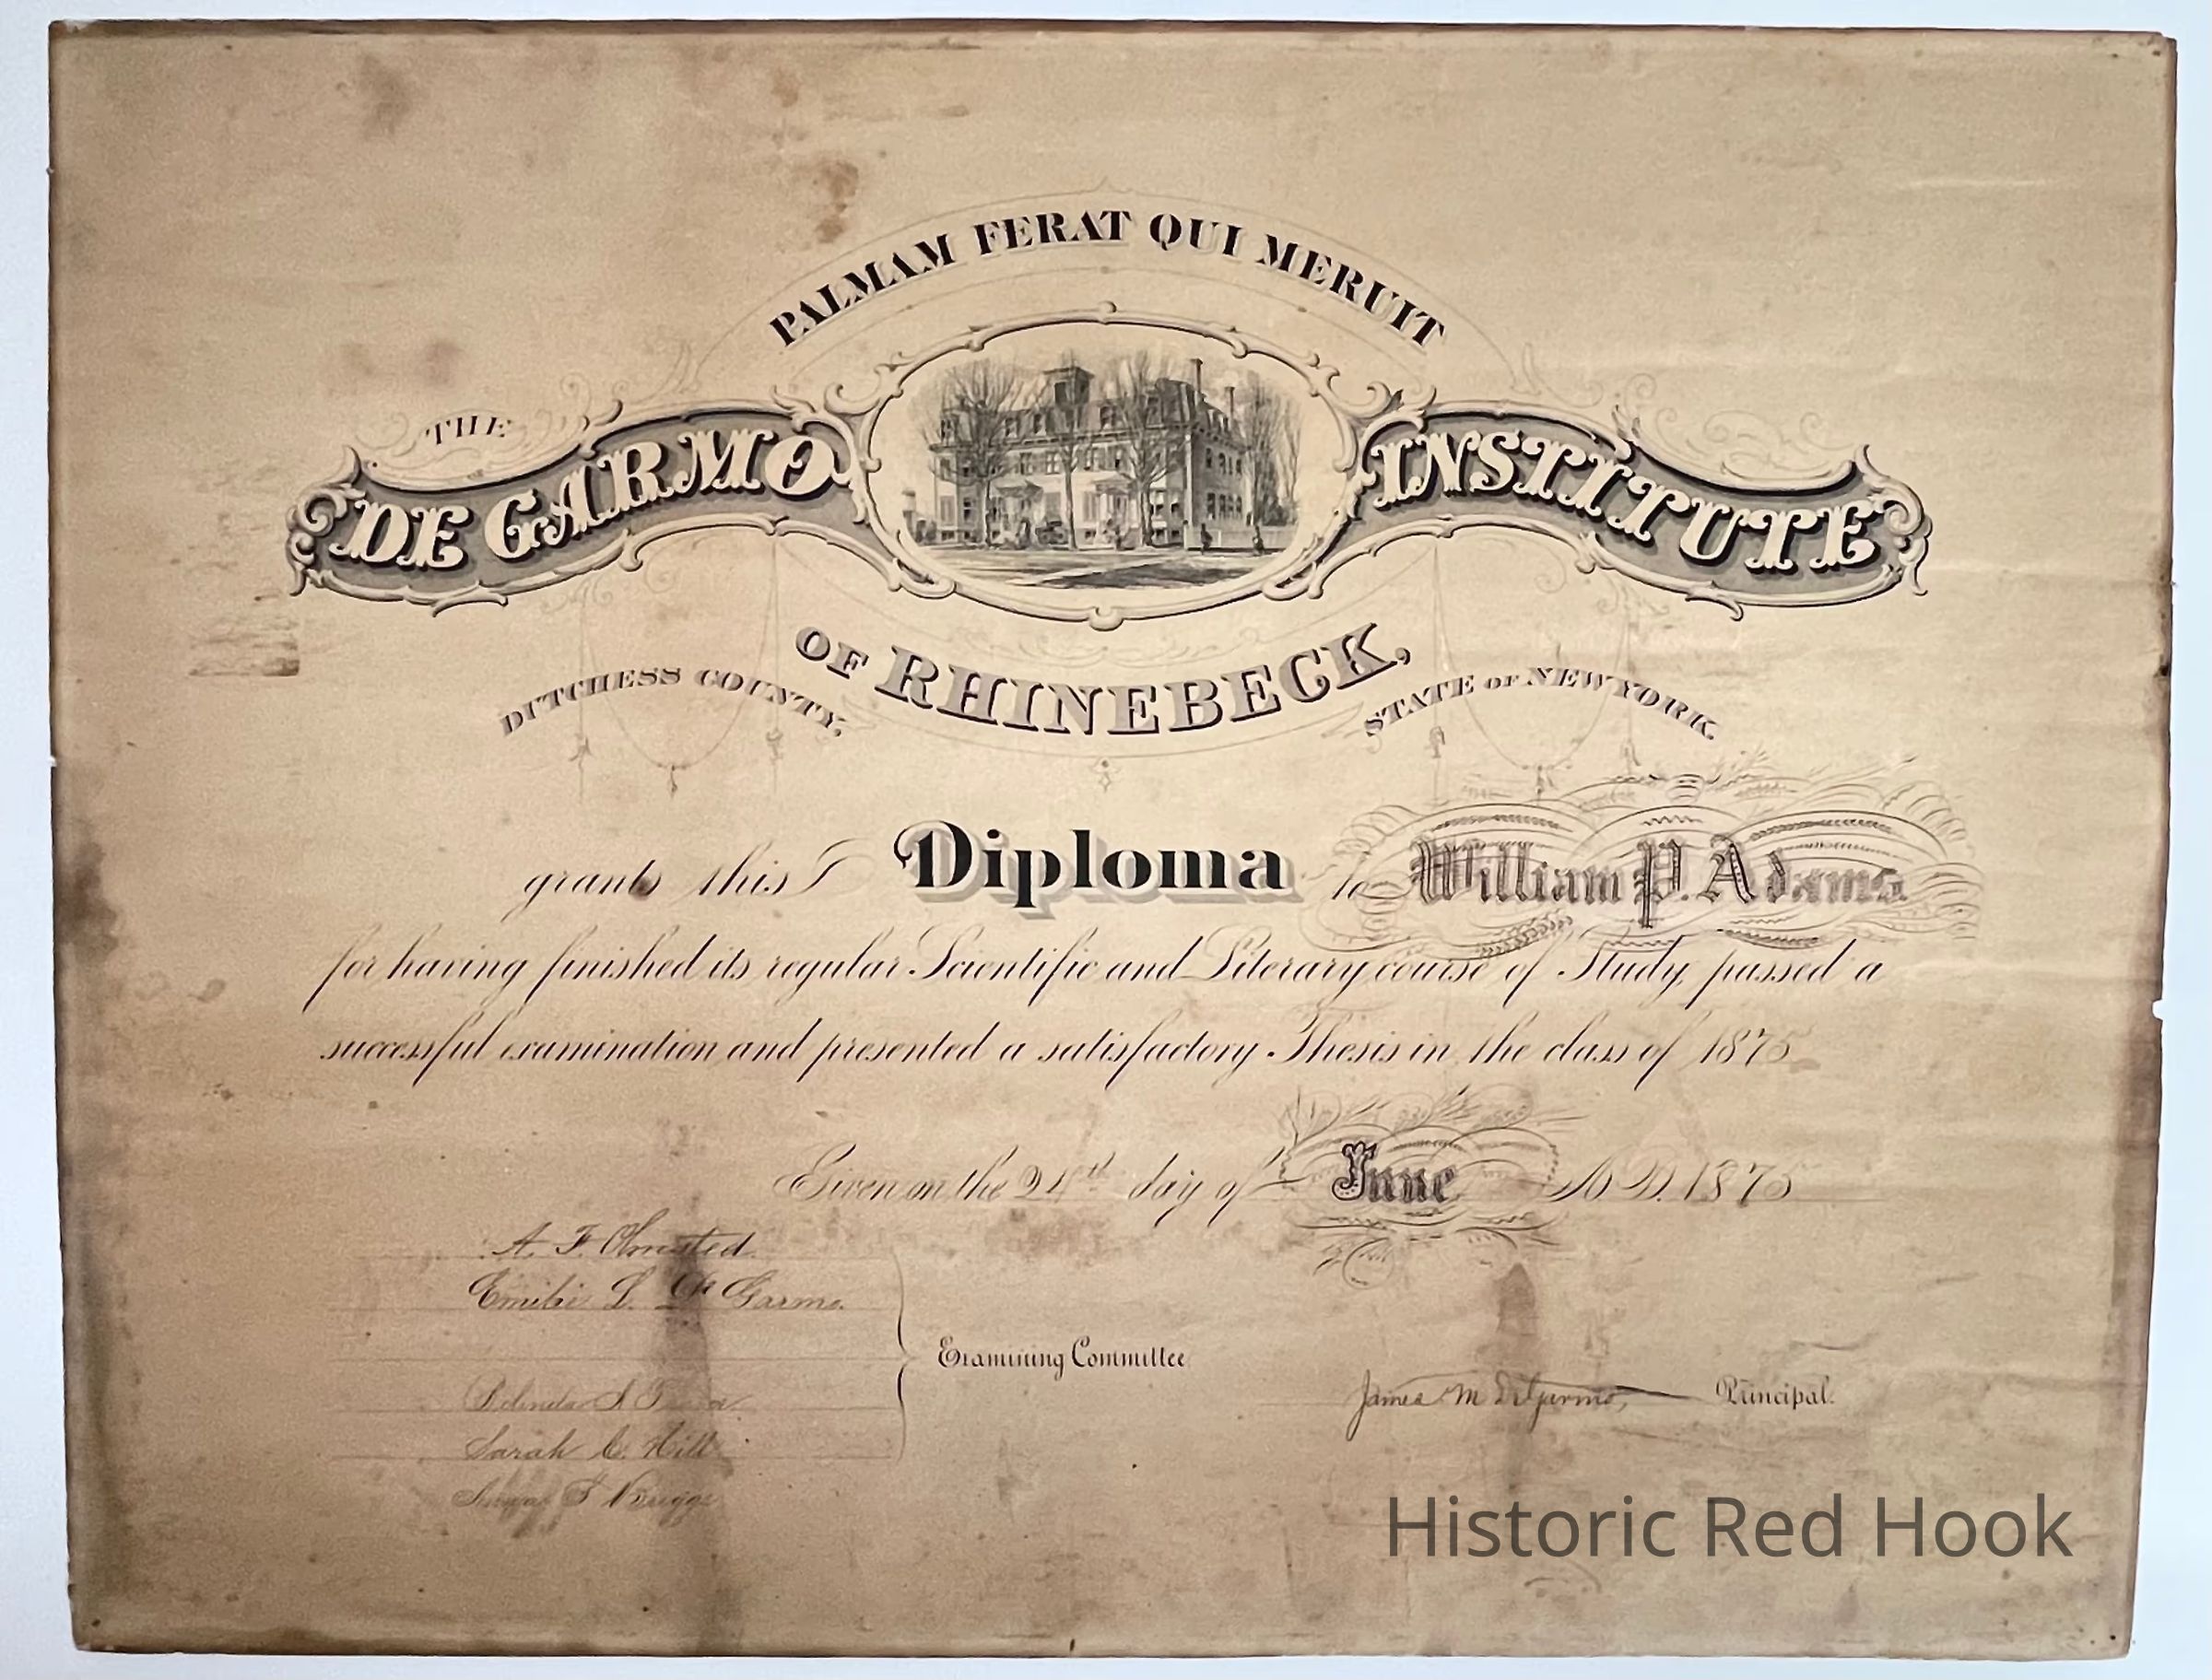 PALMAM FERAT QUI MERUIT
THE
DE GARMO INSTITUTE
OF RHINEBECK,
DUTCHESS COUNTY, STATE OF NEW YORK.
grants this Diploma to William P. Adams.
for having finished its regular Scientific and Literary course of Study, passed a
successful examination and presented a satisfactory Thesis in the class of 1875
Given on the 24th day of June A.D. 1875
A. F. Olmsted
Emilie L. De Garmo.
Examining Committee
James M DeGarmo, Principal.
Sarah C. Hill
Historic Red Hook